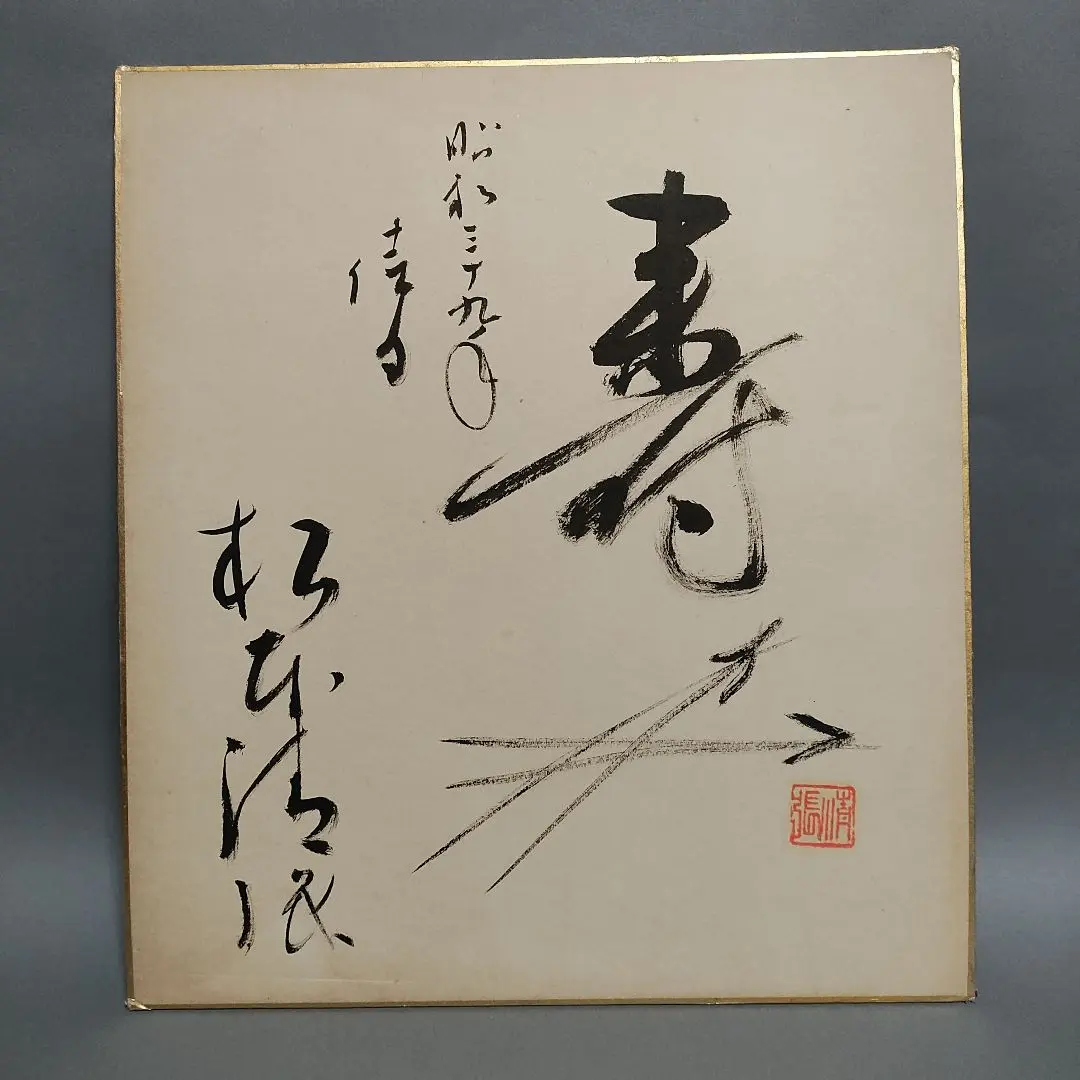 寿
昭和三十九年
佳日
松本清張
清張